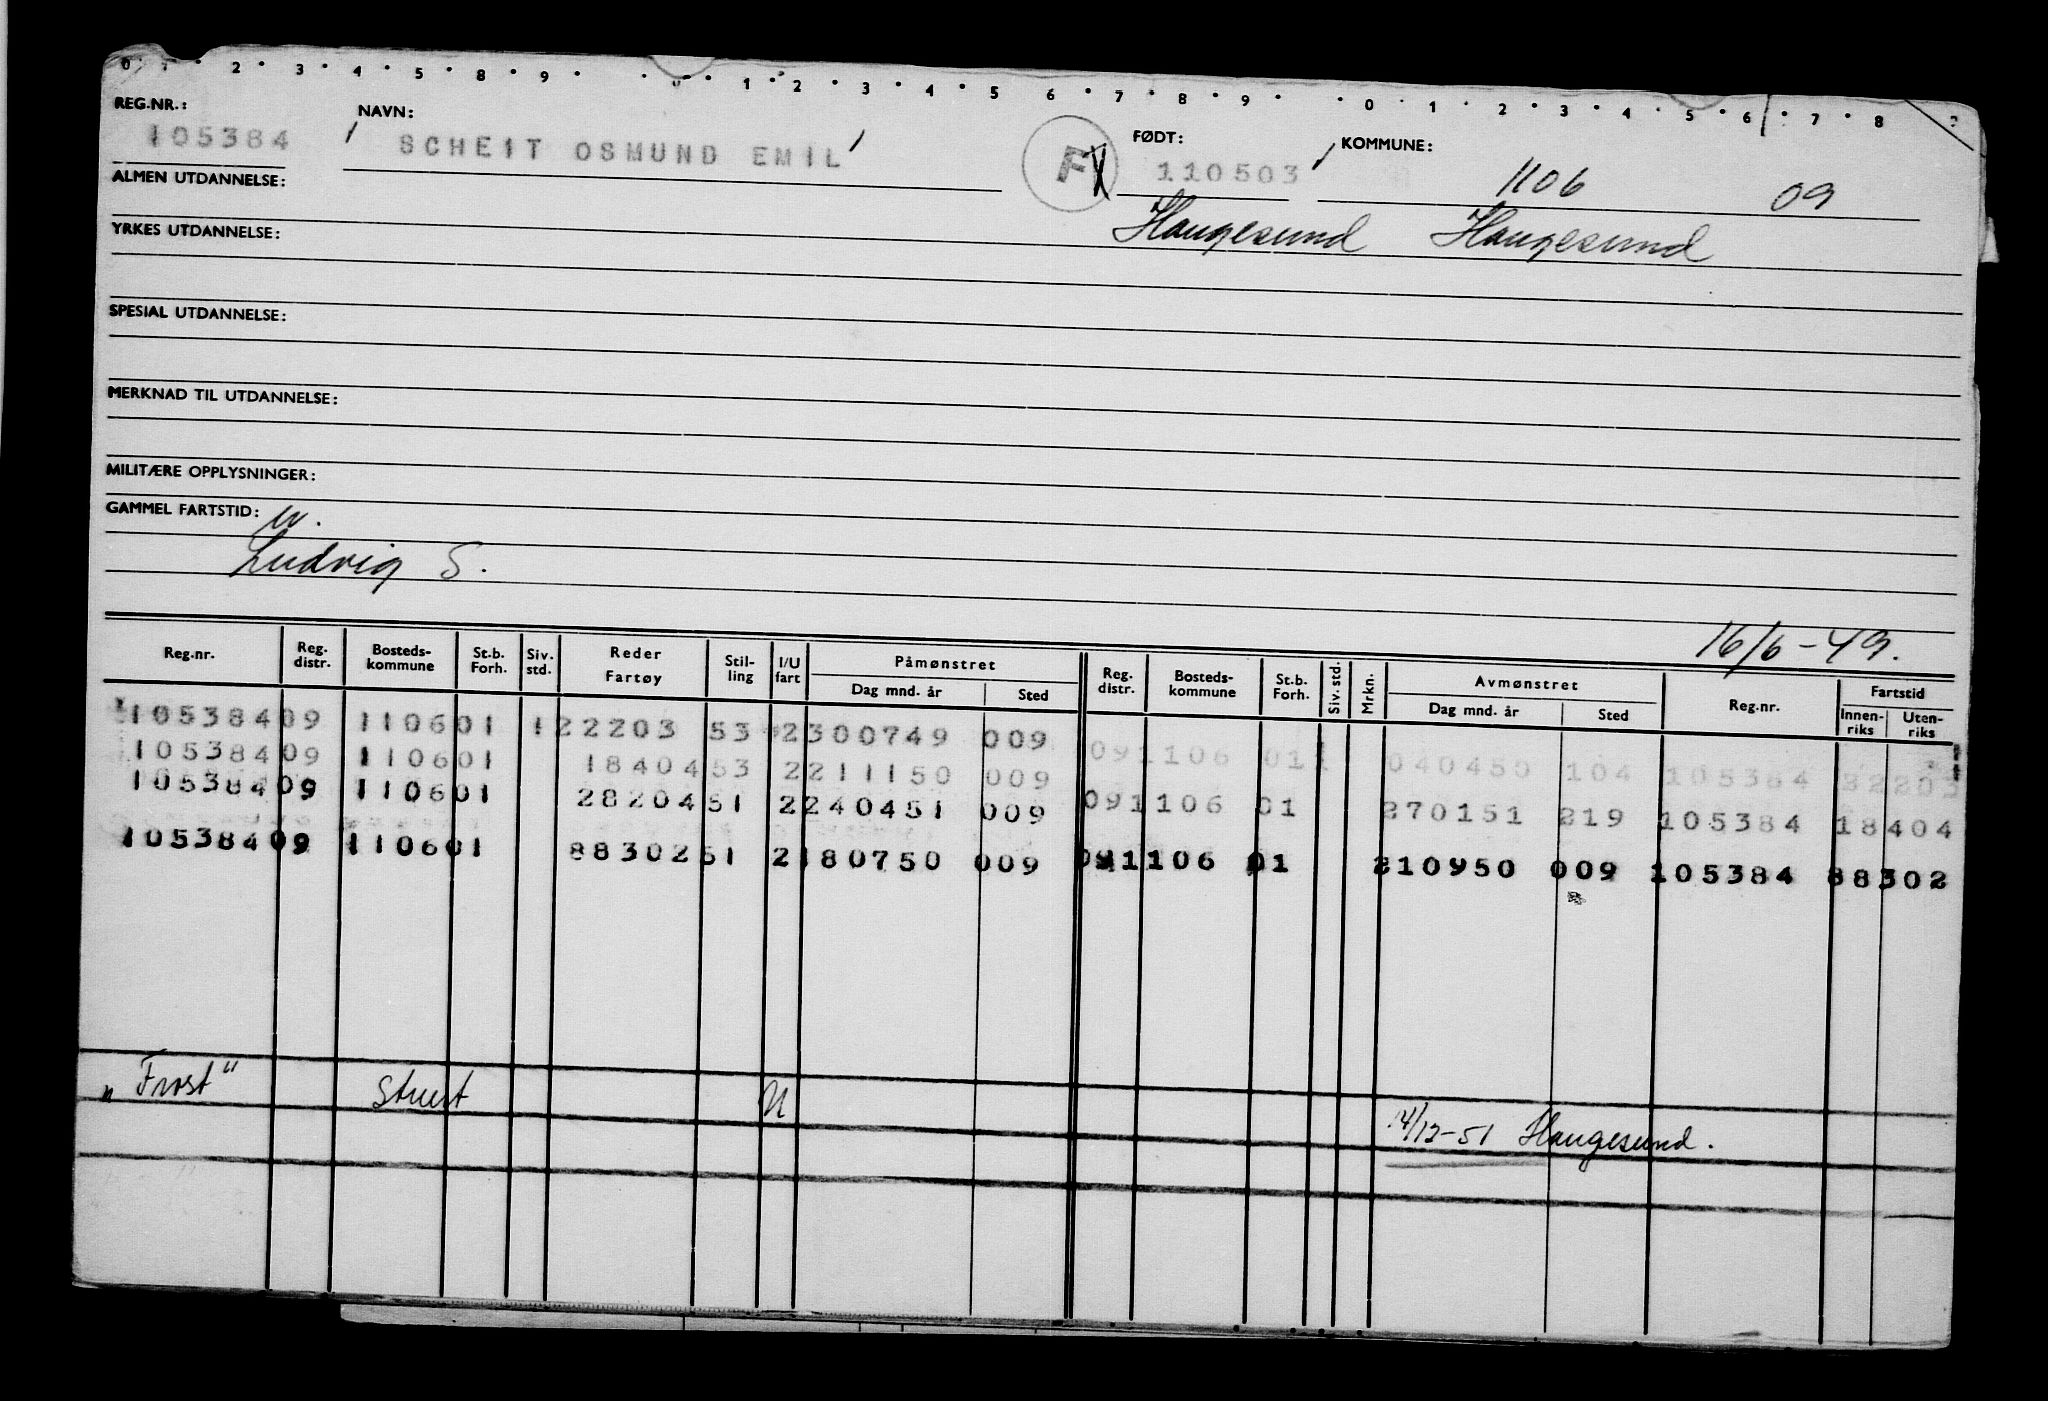 0 1 2 3 4 5 8 9 0 1 2 3 4 5 6 7 8 9 0 1 2 3 4 5 6 7 8
REG.NR.: 105384 NAVN: SCHEIT OSMUND EMIL F FØDT: 110503 KOMMUNE: 1106 09
ALMEN UTDANNELSE: Haugesund Haugesund
YRKES UTDANNELSE:
SPESIAL UTDANNELSE:
MERKNAD TIL UTDANNELSE:
MILITÆRE OPPLYSNINGER:
GAMMEL FARTSTID:
Ludvig S.
16/6-49.
Reg.nr. Reg. distr. Bosteds-kommune St.b. Forh. Siv. std. Reder Fartøy Stil-ling I/U fart Påmønstret Dag mnd. år Sted Reg. distr. Bosteds-kommune St.b. Forh. Siv. std. Mrkn. Avmønstret Dag mnd. år Sted Reg.nr. Fartstid Innen-riks Uten-riks
105384 09 1106 01 1 22203 53 2 300749 009
105384 09 1106 01 18404 53 2 211150 009 09 1106 01 1 040450 104 105384 22203
105384 09 1106 01 28204 51 2 240451 009 09 1106 01 270151 219 105384 18404
105384 09 1106 01 88302 51 2 180750 009 09 1106 01 210950 009 105384 88302
"Frost" Stuert U 14/12-51 Haugesund.